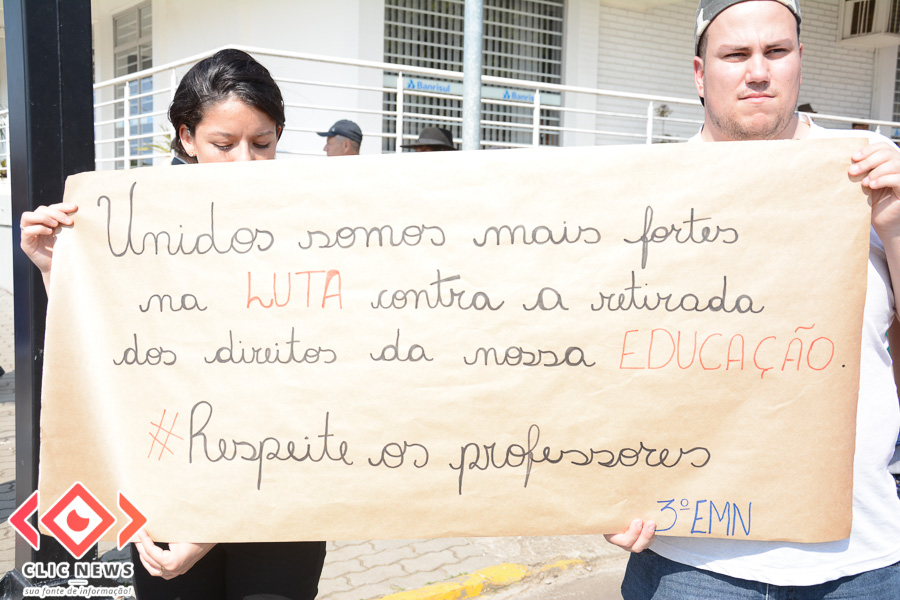 Banrisul
Banrisul
Unidos somos mais fortes
na LUTA contra a retirada
dos direitos da nossa EDUCAÇÃO.
#Respeite os professores
3º EMN
CLIC NEWS
sua fonte de informação!